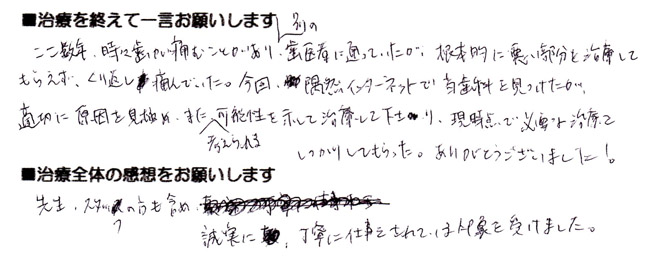 ■治療を終えて一言お願いします
ここ数年、時々歯が痛むことがあり、別の歯医者に通っていたが、根本的に悪い部分を治療して
もらえず、くり返し痛んでいた。今回、偶然インターネットで当歯科を見つけたが、
適切に原因を見極め、また考えられる可能性を示して治療して下さり、現時点で必要な治療を
しっかりしてもらった。ありがとうございました!
■治療全体の感想をお願いします
先生、スタッフの方も含め、
誠実に、丁寧に仕事をされている印象を受けました。